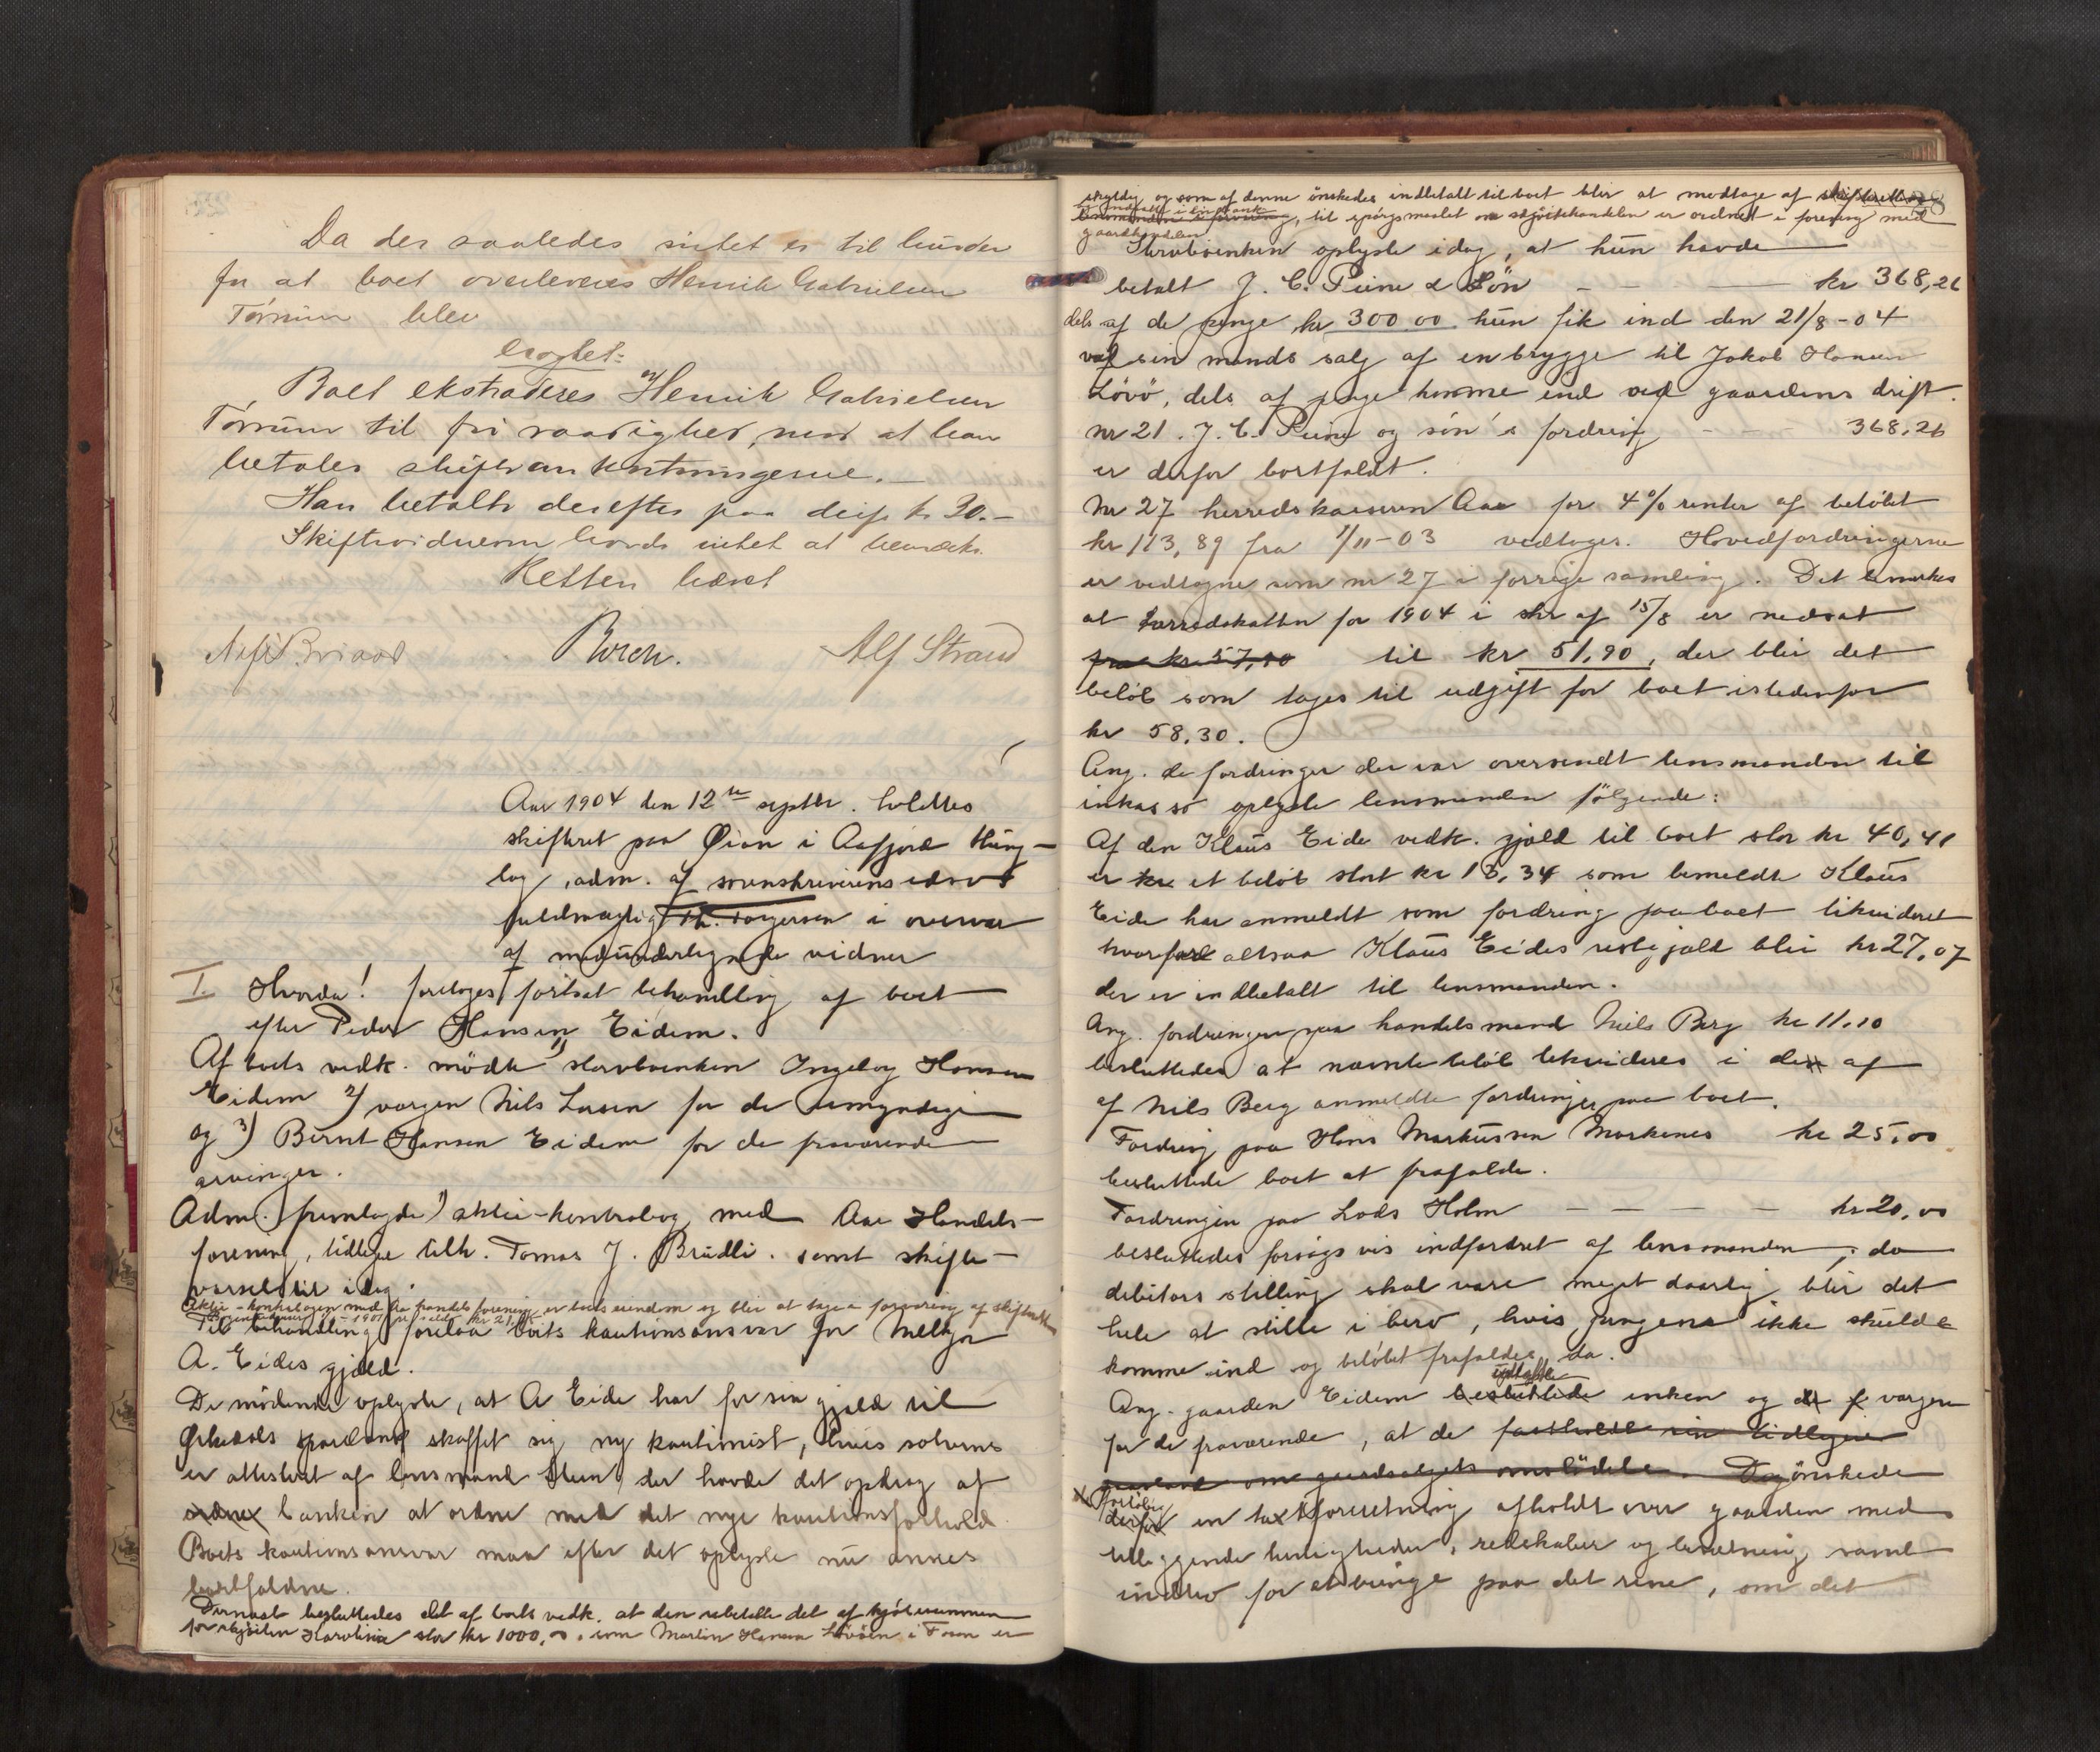 Da der saaledes intet er til hinder
for at boet overleveres Henrik Gabrielsen
Tørrüm blev
Boet ekstraderes Henrik Gabrielsen
Tørrüm til fri raadighed, mod at han
betaler skifteomkostningerne.
Han betalte derefter paa kr 20.–
Skiftevidnerne havde intet at bemærke.
Retten hævet
Birch. Alf Strand
Aar 1904 den 12te septbr. holdtes
skifteret paa Øian i Aafjord thing-
lag, adm. af sorenskriverens edsv.
fuldmægtig Th. Torgersen i overvær
af medundertegnede vidner
I. Hvorda! foretoges fortsat behandling af boet
efter Peder Hansen Eidem.
Af boets vedk. mødte 1) storbvenken Ingeborg Hansen
Eidem 2) vergen Nils Larsen for de umyndige
og 3) Bernt Hansen Eidem for de fraværende
arvinger.
Adm. fremlagde 1) aktie-kontrabog med Aae Handels-
forening, tidligere tilh. Tomas J. Brüdli. samt skifte-
varsel til idag.
Aktie-kontrabogen med Aa handelsforening er boets eiendom og blir at tage i forvaring af skifteretten
Til behandling forelaa boets kautionsansvar for Melkjor
A. Eides gjæld.
De mødende oplyste, at A Eide har for sin gjæld til
Ørlandets sparebank skaffet sig ny kautionist, hvis solvens
er attesteret af lensmand Stein, der havde det opdrag af
ordne banken at ordne med det nye kautionsforhold
Boets kautionsansvar maa efter det oplyste nu ansees
bortfaldne.
Dernæst besluttedes det af boets vedk. at den resterende del af kjøbesummen
for skjøiten Karoline stor kr 1000,00, som Martin Hansen Løvøen i Fosen er
28
skyldig og som af denne ønskedes indbetalt til boet blir at modtage af skifteretten
og indsatte i en bank
lensmanden i forvaring, til spørgsmaalet om skjøitehandelen er ordnet i forening med
gaardhandelen
Storbvenken oplyste idag, at hün havde
betalt J. C. Piene & Søn – – – kr 368,26
dels af de penge kr 300 00 hün fik ind den 21/8-04
ved sin mands salg af en brygge til Jakob Hansen
Løvø, dels af penge komne ind ved gaardens drift.
nr 21. J. C. Piene og søn's fordring – – – 368,26
er derfor bortfaldt.
Nr 27 herredskassereren Aae for 4% renter af beløbet
kr 113,89 fra 1/11-03 vedtages. Hovedfordringerne
er vedtagne som nr 27 i forrige samling. Det bemerkes
at herredskatten for 1904 i skr af 15/8 er nedsat
fra kr 57,90 til kr 51,90, der blir det
beløb som tages til udgift for boet istedenfor
kr 58.30.
Ang. de fordringer der var oversendt lensmanden til
inkasso oplyste lensmanden følgende:
Af den Klaüs Eide vedk. gjæld til boet stor kr 40,41
er kr et beløb stort kr 13,34 som bemeldte Klaüs
Eide har anmeldt som fordring paa boet likvideret
hvorfor altsaa Klaüs Eides restgjæld blir kr 27,07
der er indbetalt til lensmanden.
Ang. fordringen paa handelsmand Nils Berg kr 11.10
besluttedes at nævnte beløb likvideres i den af
af Nils Berg anmeldte fordringer paa boet.
Fordring paa Hans Markussen Markenes kr 25,00
besluttede boet at frafalde.
Fordringen paa Lods Holm – – – – kr 20,00
besluttedes forsøgsvis indfordret af lensmanden, da
debitors stilling skal være meget daarlig blir det
hele at stille i bero, hvis pengene ikke skulde
komme ind og beløbet frafaldes da.
Ang. gaarden Eidem besluttede enken og vergen
for de fraværende, at de fastholdt sin tidligere
om gaardsalgets Dog ønskede
foreløbig
derfor en taxtforretning afholdt over gaarden med
tilliggende herligheder, redskaber og besætning samt
indbo for at bringe paa det rene, om det